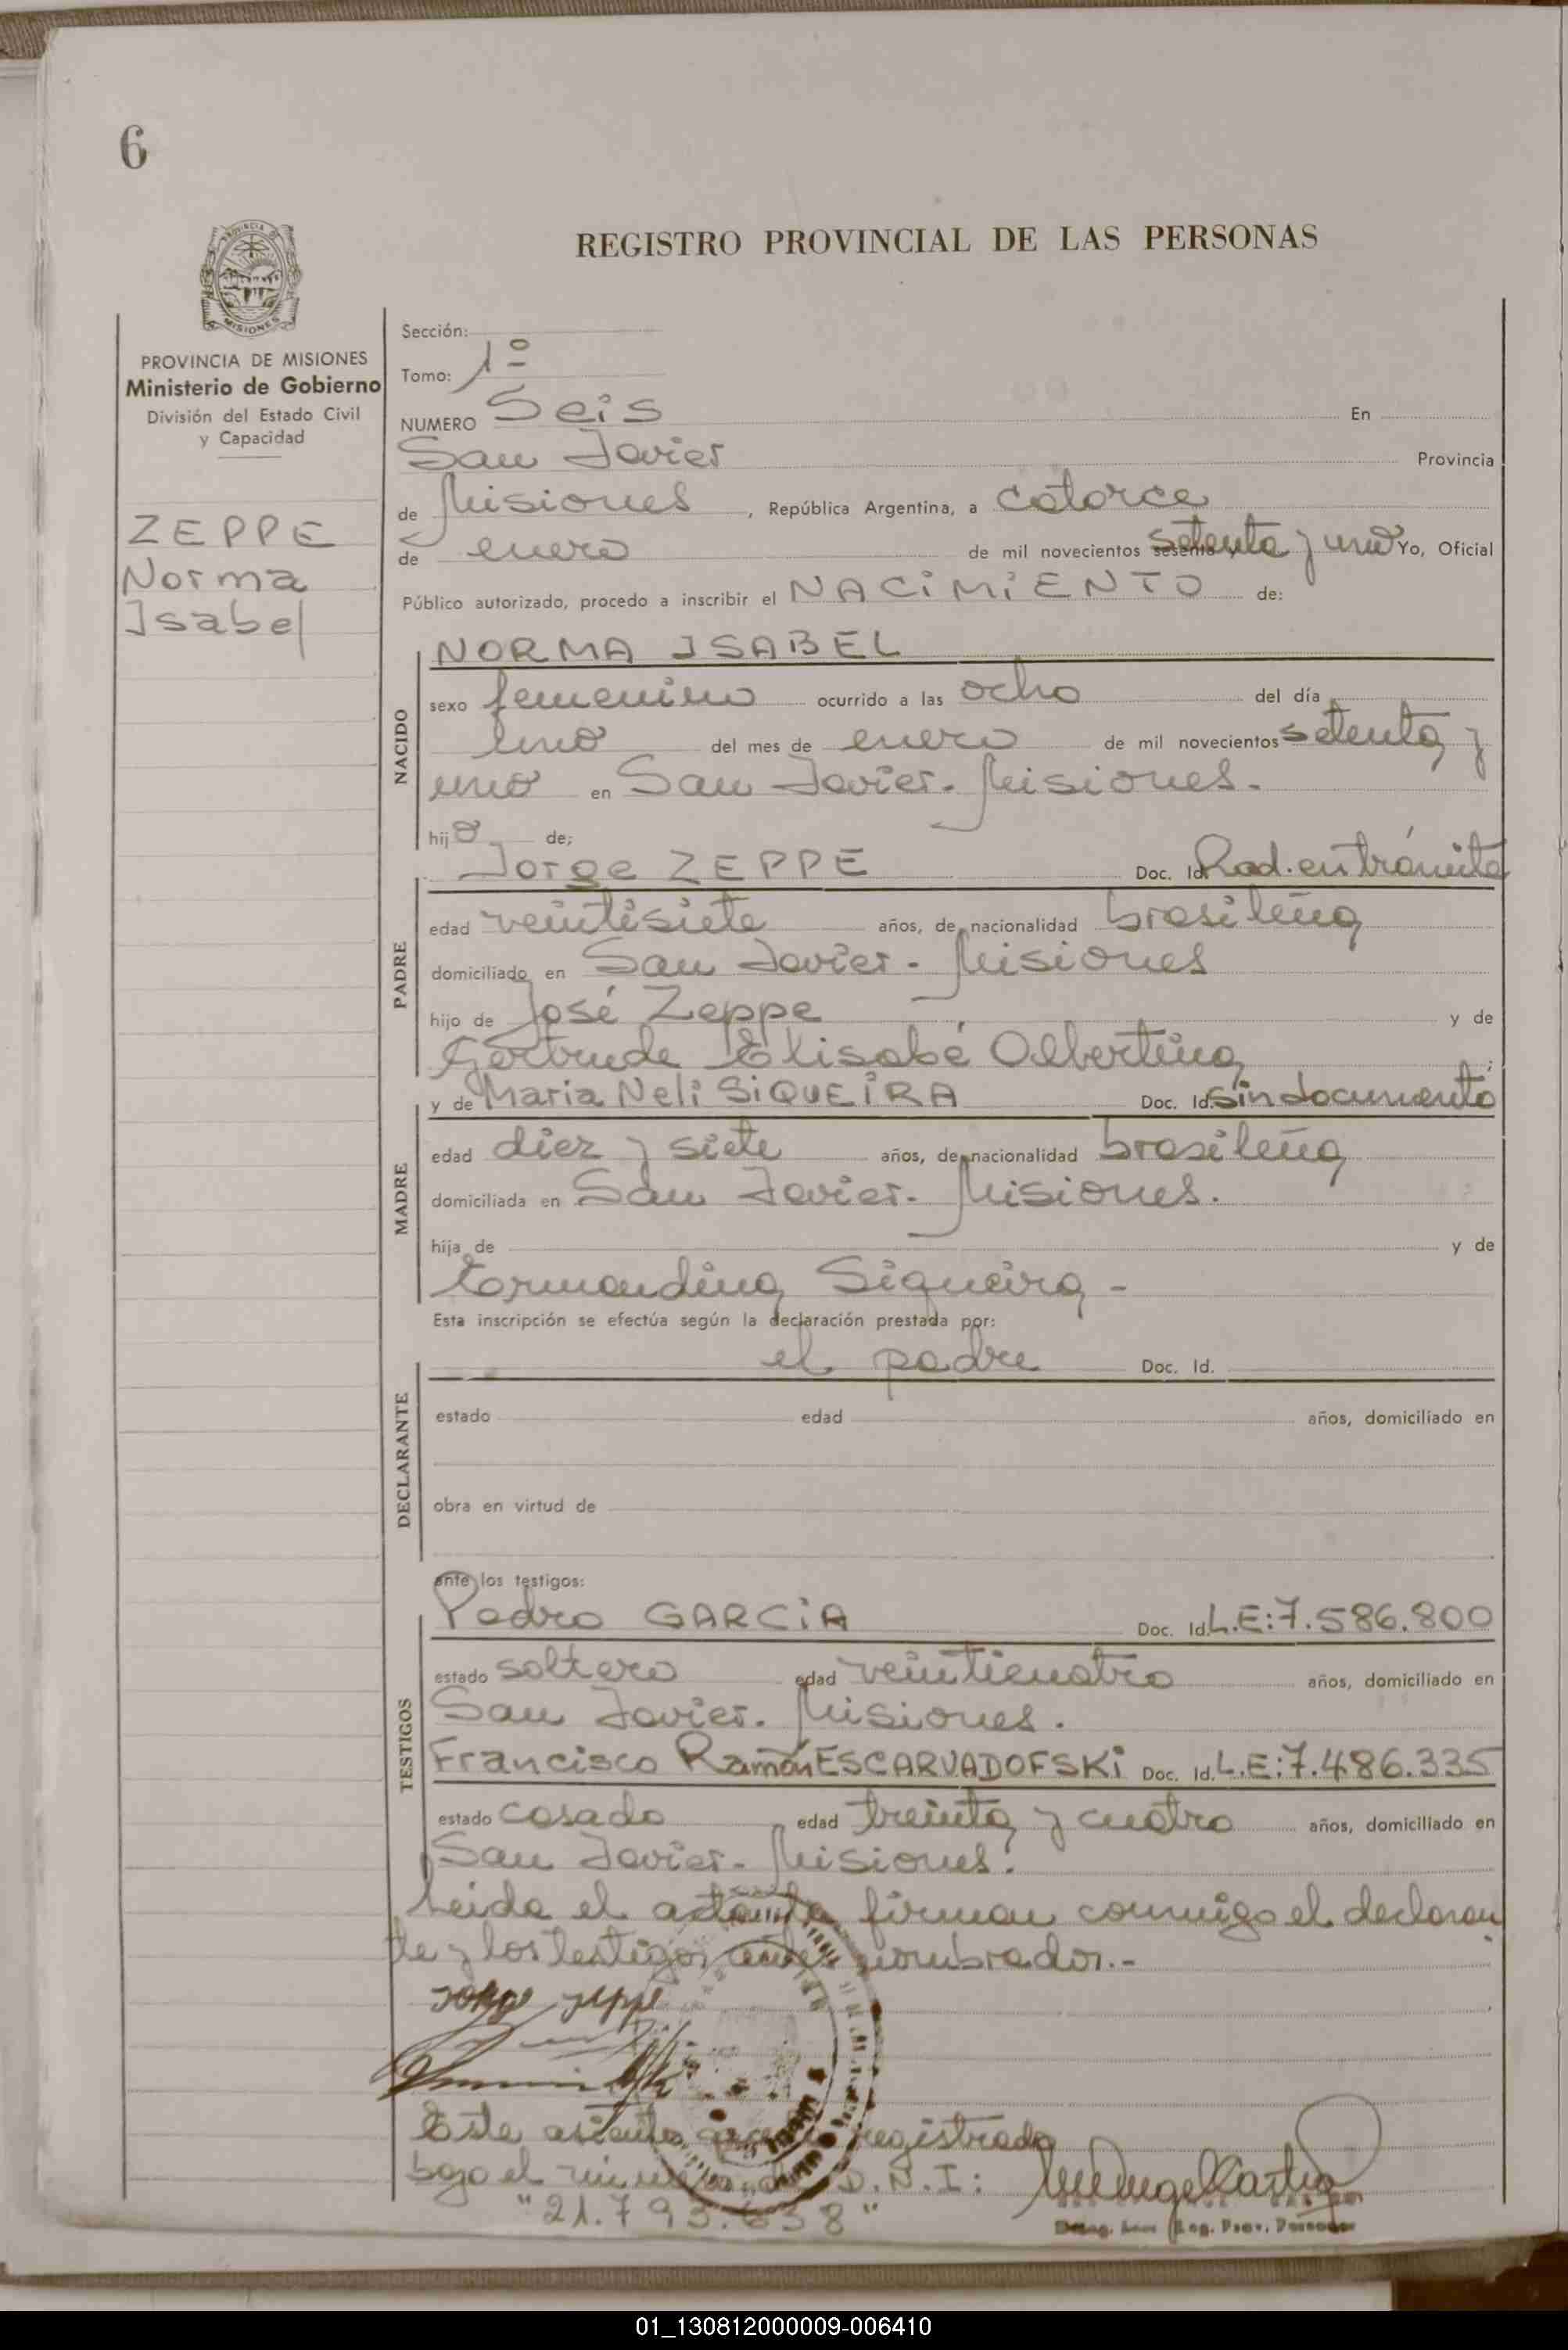 6
PROVINCIA DE MISIONES
Ministerio de Gobierno
División del Estado Civil
y Capacidad
ZEPPE
Norma
Isabel
REGISTRO PROVINCIAL DE LAS PERSONAS
Sección:
Tomo: 1º
NUMERO Seis En
San Javier Provincia
de Misiones, República Argentina, a catorce
de enero de mil novecientos setenta y uno Yo, Oficial
Público autorizado, procedo a inscribir el NACIMIENTO de:
NACIDO
NORMA ISABEL
sexo femenino ocurrido a las ocho del día
uno del mes de enero de mil novecientos setenta y
uno en San Javier. Misiones.
hija de;
PADRE
Jorge ZEPPE Doc. Id. Rad. en trámite
edad veintisiete años, de nacionalidad brasileña
domiciliado en San Javier - Misiones
hijo de José Zeppe y de
Gertrude Elisabé Albertina;
MADRE
y de Maria Neli SIQUEIRA Doc. Id. sin documento
edad diez y siete años, de nacionalidad brasileña
domiciliada en San Javier. Misiones.
hija de y de
Ermandina Siqueira -
Esta inscripción se efectúa según la declaración prestada por:
DECLARANTE
el padre Doc. Id.
estado edad años, domiciliado en
obra en virtud de
ante los testigos:
TESTIGOS
Pedro GARCIA Doc. Id. L.E:7.586.800
estado soltero edad veinticuatro años, domiciliado en
San Javier. Misiones.
Francisco Ramón ESCARVADOFSKI Doc. Id. L.E:7.486.335
estado casado edad treinta y cuatro años, domiciliado en
San Javier - Misiones.
Leida el acta la firman conmigo el declaran
te y los testigos antes nombrados.-
Jorge Zeppe
Este asiento registrado
bajo el número de D.N.I:
"21.793.638"
01_130812000009-006410